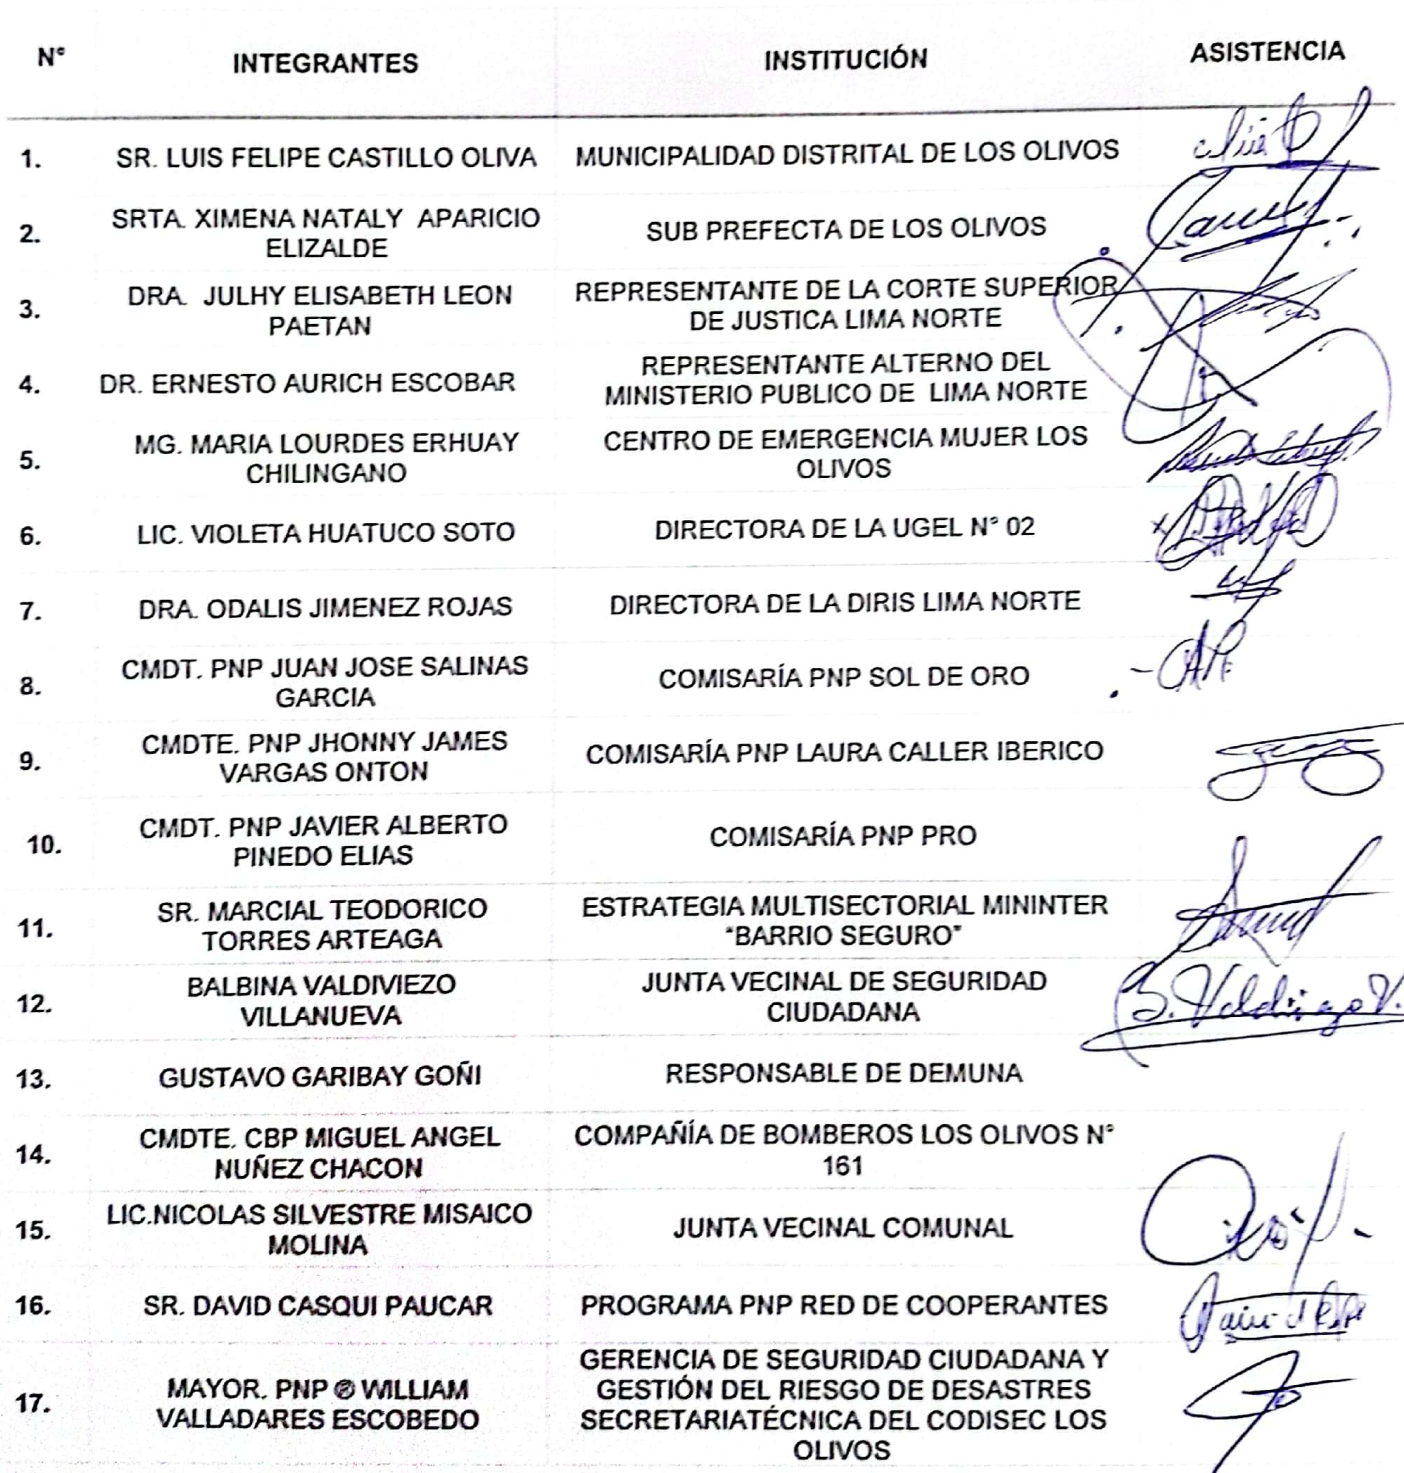 N° INTEGRANTES INSTITUCIÓN ASISTENCIA
1. SR. LUIS FELIPE CASTILLO OLIVA MUNICIPALIDAD DISTRITAL DE LOS OLIVOS
2. SRTA. XIMENA NATALY APARICIO
ELIZALDE
SUB PREFECTA DE LOS OLIVOS
3. DRA. JULHY ELISABETH LEON
PAETAN
REPRESENTANTE DE LA CORTE SUPERIOR
DE JUSTICA LIMA NORTE
4. DR. ERNESTO AURICH ESCOBAR
REPRESENTANTE ALTERNO DEL
MINISTERIO PUBLICO DE LIMA NORTE
5. MG. MARIA LOURDES ERHUAY
CHILINGANO
CENTRO DE EMERGENCIA MUJER LOS
OLIVOS
6. LIC. VIOLETA HUATUCO SOTO DIRECTORA DE LA UGEL N° 02
7. DRA. ODALIS JIMENEZ ROJAS DIRECTORA DE LA DIRIS LIMA NORTE
8. CMDT. PNP JUAN JOSE SALINAS
GARCIA
COMISARÍA PNP SOL DE ORO
9. CMDTE. PNP JHONNY JAMES
VARGAS ONTON
COMISARÍA PNP LAURA CALLER IBERICO
10. CMDT. PNP JAVIER ALBERTO
PINEDO ELIAS
COMISARÍA PNP PRO
11. SR. MARCIAL TEODORICO
TORRES ARTEAGA
ESTRATEGIA MULTISECTORIAL MININTER
"BARRIO SEGURO"
12. BALBINA VALDIVIEZO
VILLANUEVA
JUNTA VECINAL DE SEGURIDAD
CIUDADANA
13. GUSTAVO GARIBAY GOÑI RESPONSABLE DE DEMUNA
14. CMDTE. CBP MIGUEL ANGEL
NUÑEZ CHACON
COMPAÑÍA DE BOMBEROS LOS OLIVOS N°
161
15. LIC.NICOLAS SILVESTRE MISAICO
MOLINA
JUNTA VECINAL COMUNAL
16. SR. DAVID CASQUI PAUCAR PROGRAMA PNP RED DE COOPERANTES
17. MAYOR. PNP ® WILLIAM
VALLADARES ESCOBEDO
GERENCIA DE SEGURIDAD CIUDADANA Y
GESTIÓN DEL RIESGO DE DESASTRES
SECRETARIATÉCNICA DEL CODISEC LOS
OLIVOS